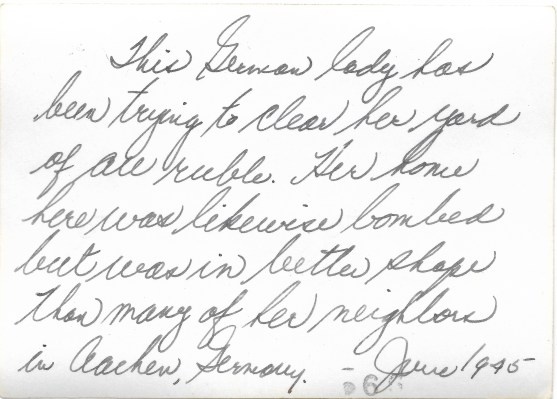 This German lady has
been trying to clear her yard
of all ruble. Her home
here was likewise bombed
but was in better shape
than many of her neighbors
in Aachen, Germany. - June 1945
6